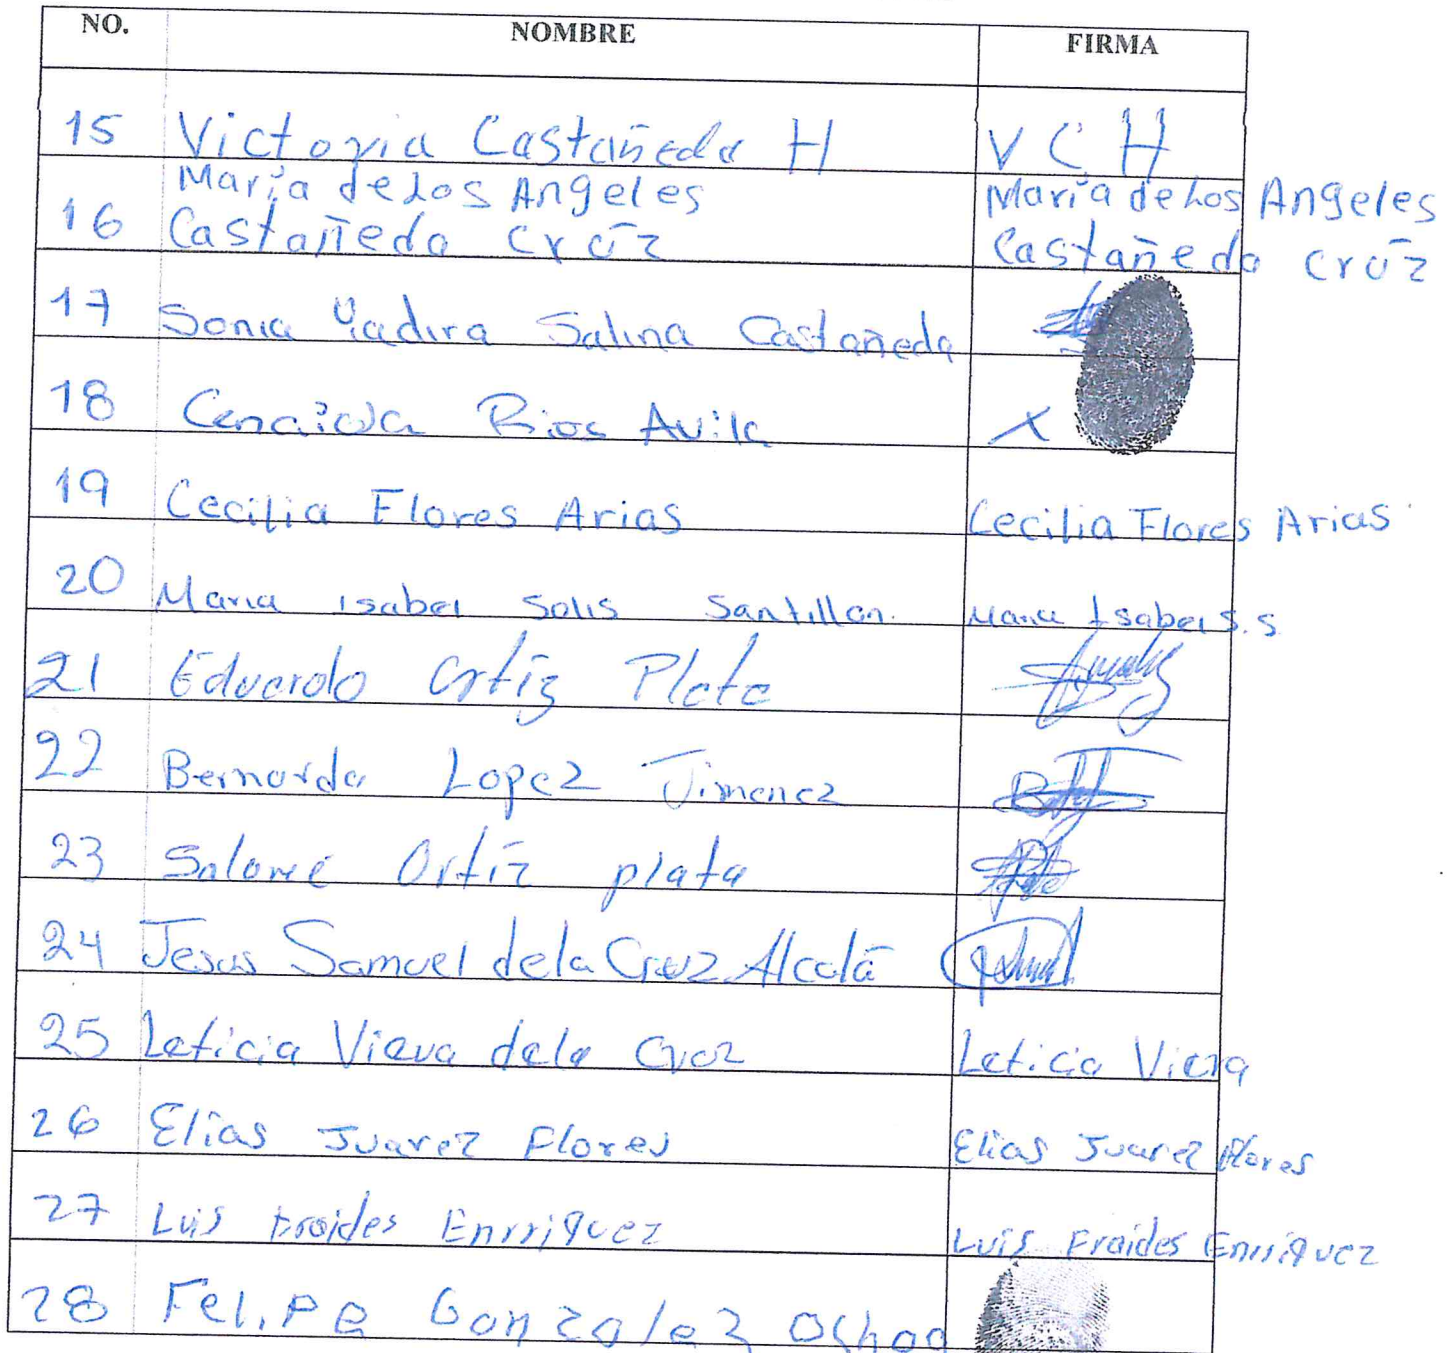 NO. NOMBRE FIRMA
15 Victoria Castañeda H V C H
María de Los Angeles María de Los Angeles
16 Castañeda Cruz Castañeda Cruz
17 Sonia Yadira Salina Castañeda
18 Cenaida Rios Avila X
19 Cecilia Flores Arias Cecilia Flores Arias
20 Maria Isabel Solis Santillan. Maria Isabel S.S.
21 Eduardo Ortiz Plata
22 Bernarda Lopez Jimenez
23 Salomé Ortiz plata
24 Jesus Samuel dela Cruz Alcalá
25 Leticia Viera dela Cruz Leticia Viera
26 Elias Juarez Flores Elias Juarez Flores
27 Luis Enrriquez Luis Enrriquez
28 Felipe Gonzalez Ochoa